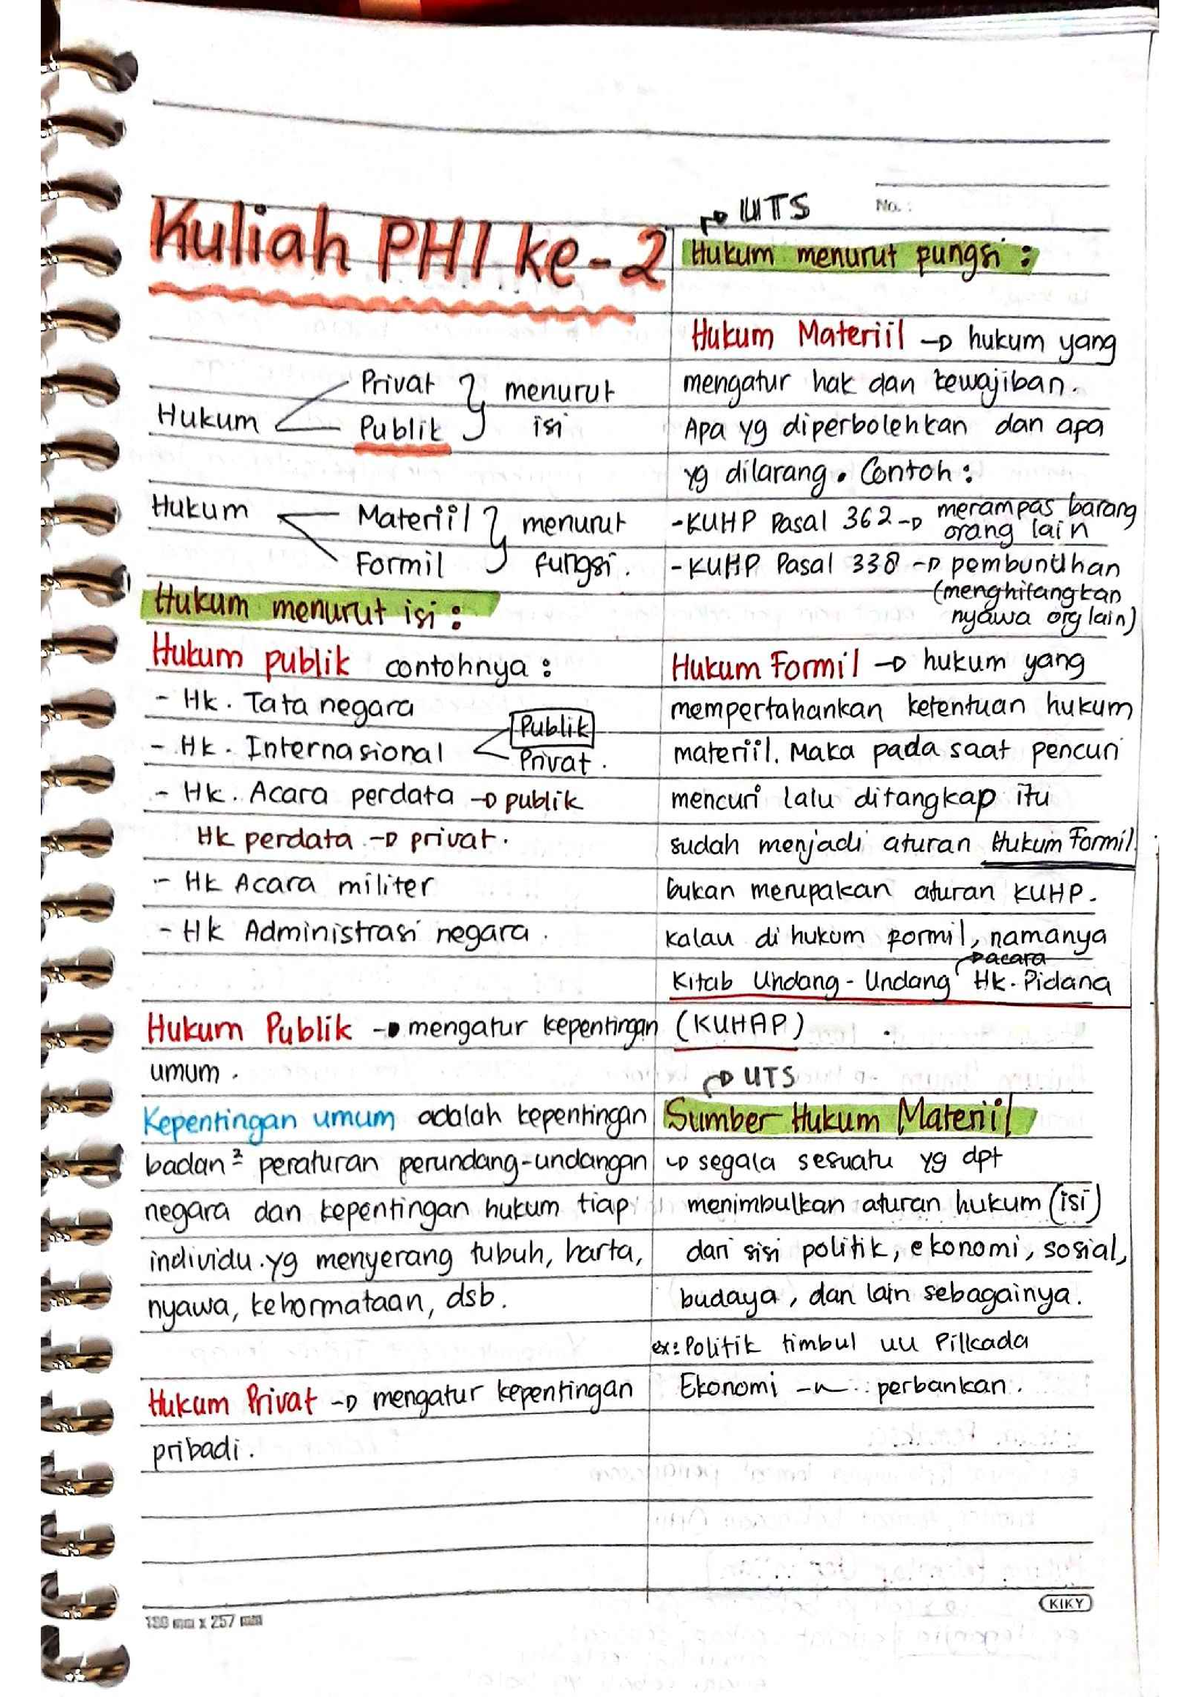 Kuliah PHI ke-2
Hukum
Privat
Publik
menurut
isi
Hukum
Materiil
Formil
menurut
fungsi.
Hukum menurut isi :
Hukum publik contohnya :
- Hk. Tata negara
- Hk. Internasional
Publik
Privat.
- Hk. Acara perdata → publik
Hk perdata → privat.
- Hk Acara militer
- Hk Administrasi negara.
Hukum Publik → mengatur kepentingan
umum.
Kepentingan umum adalah kepentingan
badan² peraturan perundang-undangan
negara dan kepentingan hukum tiap
individu. yg menyerang tubuh, harta,
nyawa, kehormataan, dsb.
Hukum Privat → mengatur kepentingan
pribadi.
No. :
→ UTS
Hukum menurut pungsi :
Hukum Materiil → hukum yang
mengatur hak dan kewajiban.
Apa yg diperbolehkan dan apa
yg dilarang. Contoh :
- KUHP Pasal 362 → merampas barang
orang lain
- KUHP Pasal 338 → pembunuhan
(menghilangkan
nyawa org lain)
Hukum Formil → hukum yang
mempertahankan ketentuan hukum
materiil. Maka pada saat pencuri
mencuri lalu ditangkap itu
sudah menjadi aturan Hukum Formil
bukan merupakan aturan KUHP.
kalau di hukum formil, namanya
→ acara
Kitab Undang-Undang Hk. Pidana
(KUHAP)
→ UTS
Sumber Hukum Materiil
↳ segala sesuatu yg dpt
menimbulkan aturan hukum (isi)
dari sisi politik, ekonomi, sosial,
budaya, dan lain sebagainya.
ex: Politik timbul uu Pilkada
Ekonomi -〃- perbankan.
KIKY
180 mm x 257 mm